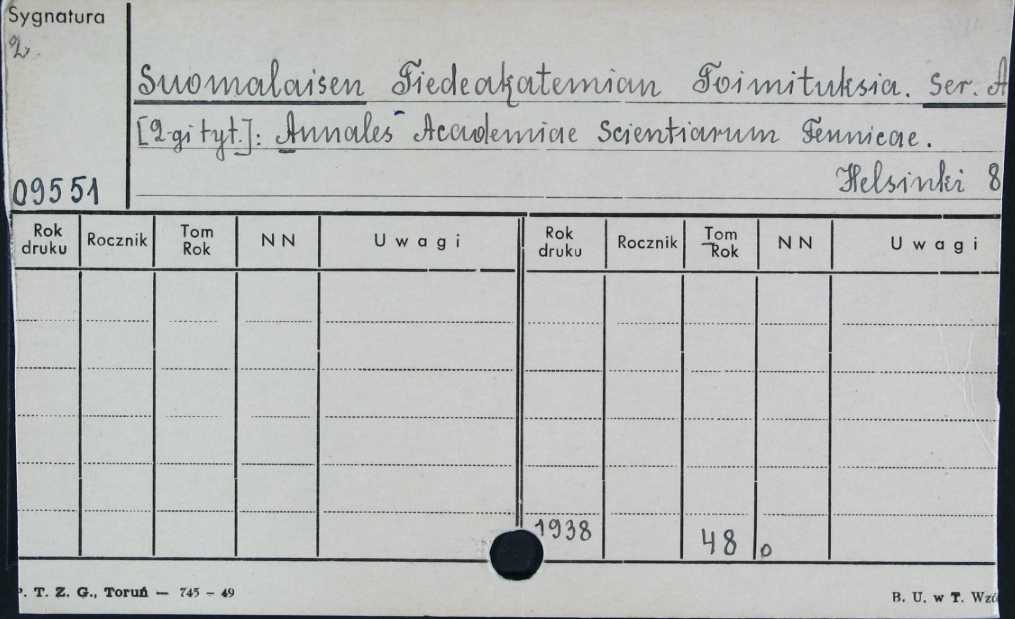 Sygnatura
2
Suomalaisen Tiedeakatemian Toimituksia. Ser. A
[2-gi tyt.]: Annales Academiae Scientiarum Fennicae.
09551
Helsinki 8
Rok druku Rocznik Tom Rok NN Uwagi Rok druku Rocznik Tom Rok NN Uwagi
1938 48 o
P. T. Z. G., Toruń — 745 - 49 B. U. w T. Wzó